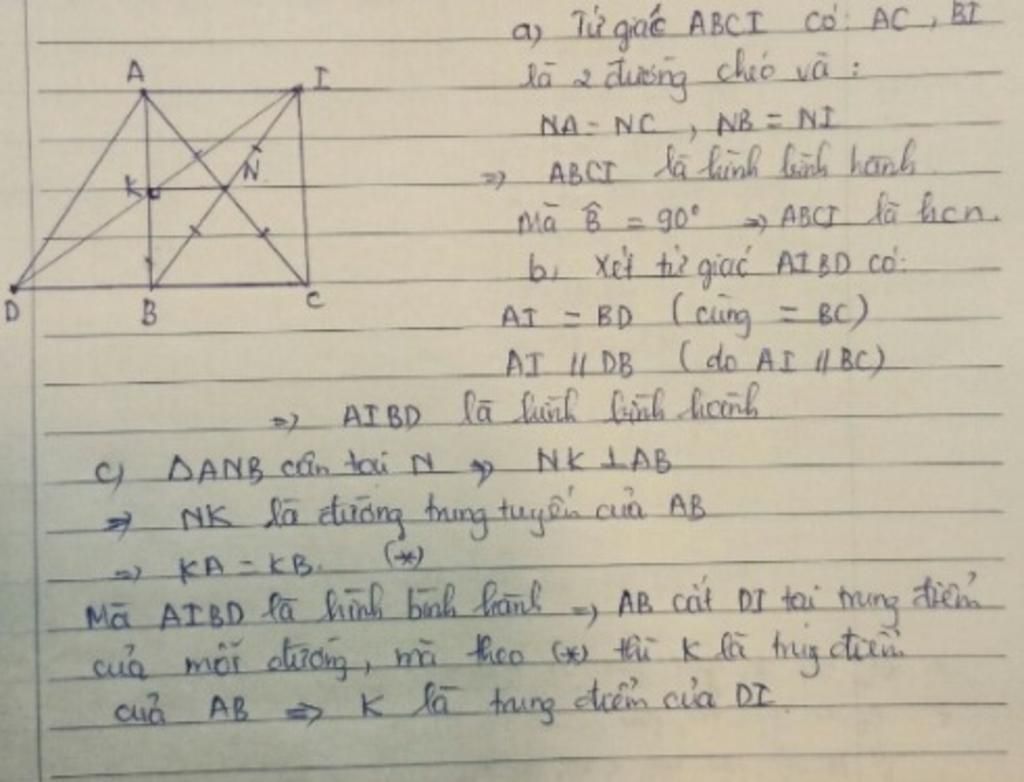 a) Tứ giác ABCI có: AC, BI
là 2 đường chéo và:
NA = NC, NB = NI
=> ABCI là hình bình hành
Mà B̂ = 90° => ABCI là hcn.
b, Xét tứ giác AIBD có:
AI = BD (cùng = BC)
AI // DB (do AI // BC)
=> AIBD là hình bình hành
c) ΔANB cân tại N => NK ⊥ AB
=> NK là đường trung tuyến của AB
=> KA = KB. (*)
Mà AIBD là hình bình hành => AB cắt DI tại trung điểm
của mỗi đường, mà theo (*) thì K là trung điểm
của AB => K là trung điểm của DI
A
I
K
N
D
B
C